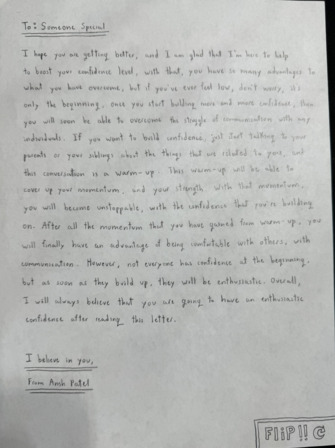 To: Someone Special
I hope you are getting better, and I am glad that I'm here to help
to boost your confidence level, with that, you have so many advantages to
what you have overcome, but if you've ever feel low, don't worry, it's
only the beginning, once you start building more and more confidence, then
you will soon be able to overcome the struggle of communication with any
individuals. If you want to build confidence, just start talking to your
parents or your siblings about the things that are related to yours, and
this conversation is a warm-up. This warm-up will be able to
cover up your momentum, and your strength, with that momentum,
you will become unstoppable, with the confidence that you're building
on. After all the momentum that you have gained from warm-up, you
will finally have an advantage of being comfortable with others, with
communication. However, not everyone has confidence at the beginning,
but as soon as they build up, they will be enthusiastic. Overall,
I will always believe that you are going to have an enthusiastic
confidence after reading this letter.
I believe in you,
From Ansh Patel
FLIP!!